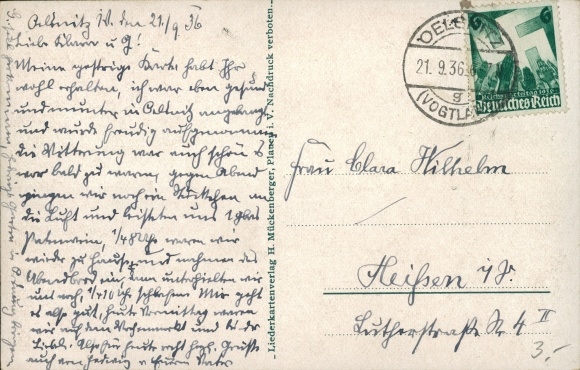 Oelsnitz i/V. den 21/9 36
Liebe Clara u G!
Meine gestrige Karte habt Ihr
wohl erhalten, ich war eben gesund
und munter in Oelsnitz angelangt
und wurde freudig aufgenommen
die Witterung war auch schön es
war bald zu warm, gegen Abend
gingen wir noch ein Stückchen an
die Luft und leisteten uns 1 Glas
1/48 Uhr waren wir
wieder zu Hause und nahmen das
Abendbrod ein, dann unterhielten wir
uns noch, 1/410 ich schlafen. Mir geht
es also gut, heute Vormittag waren
wir auf dem Wochenmarkt und bei der
Liebl. Also für heute recht herzl. Grüße
auch von Hedwig u Eurem Vater
Liederkartenverlag H. Mückenberger, Planey i. V. Nachdruck verboten.
OELSNITZ
21. 9. 36
g
(VOGTL
6 6
Deutsches Reich
Frau Clara Wilhelm
Meißen i/S.
Lutherstraße Nr 4 II
3.-